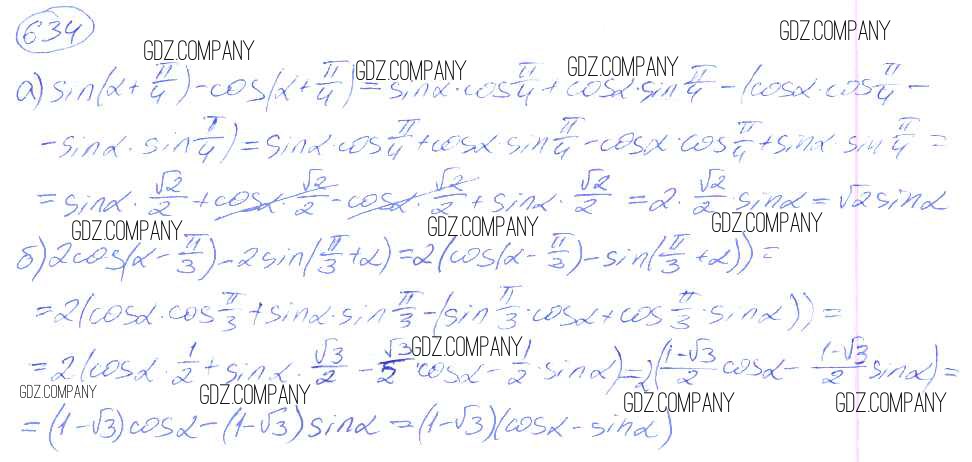 634
GDZ.COMPANY
GDZ.COMPANY GDZ.COMPANY GDZ.COMPANY
а) sin(α + π/4) - cos(α + π/4) = sinα · cos π/4 + cosα · sin π/4 - (cosα · cos π/4 -
- sinα · sin π/4) = sinα · cos π/4 + cosα · sin π/4 - cosα · cos π/4 + sinα sin π/4 =
= sinα · √2/2 + cosα · √2/2 - cosα · √2/2 + sinα · √2/2 = 2 · √2/2 sinα = √2 sinα
GDZ.COMPANY GDZ.COMPANY GDZ.COMPANY
б) 2cos(α - π/3) - 2sin(π/3 + α) = 2(cos(α - π/3) - sin(π/3 + α)) =
= 2(cosα · cos π/3 + sinα · sin π/3 - (sin π/3 · cosα + cos π/3 · sinα)) =
GDZ.COMPANY
= 2(cosα · 1/2 + sinα · √3/2 - √3/2 · cosα - 1/2 · sinα) = 2((1-√3)/2 cosα - (1-√3)/2 sinα) =
GDZ.COMPANY GDZ.COMPANY GDZ.COMPANY GDZ.COMPANY
= (1-√3)cosα - (1-√3)sinα = (1-√3)(cosα - sinα)